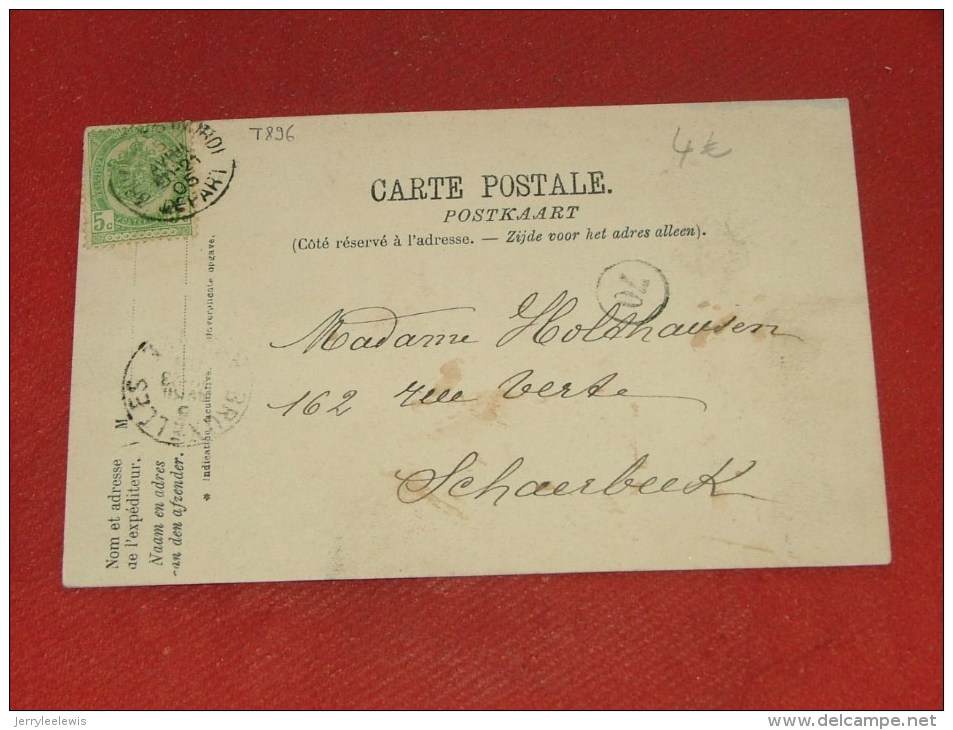 T896
4€
CARTE POSTALE.
POSTKAART
(Côté réservé à l'adresse. — Zijde voor het adres alleen).
5 c
DÉPART
70
Madame Holthausen
162 rue Verte
Schaerbeek
M
Nom et adresse
de l'expéditeur.
Naam en adres
van den afzender.
* Indication facultative.
opgave.
jerryleelewis
www.delcampe.net